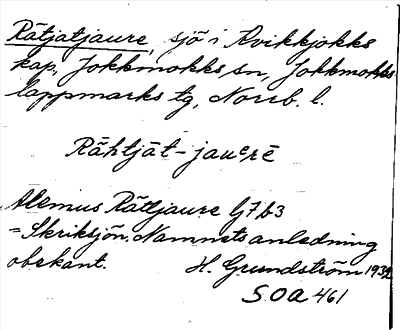 Rätjatjaure, sjö i Kvikkjokks
kap, Jokkmokks sn, Jokkmokks
lappmarks tg, Norrb. l.
Rāhtjāt-jauᵉrē
Alemus Rättjaure G7b3
= Skriksjön. Namnets anledning
obekant. H. Grundström 1932
SOA 461